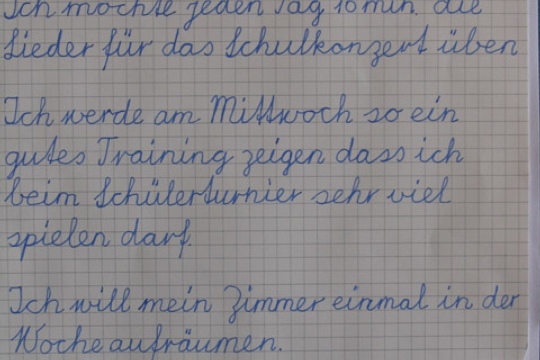 Ich möchte jeden Tag 10 min. die
Lieder für das Schulkonzert üben
Ich werde am Mittwoch so ein
gutes Training zeigen dass ich
beim Schülerturnier sehr viel
spielen darf.
Ich will mein Zimmer einmal in der
Woche aufräumen.